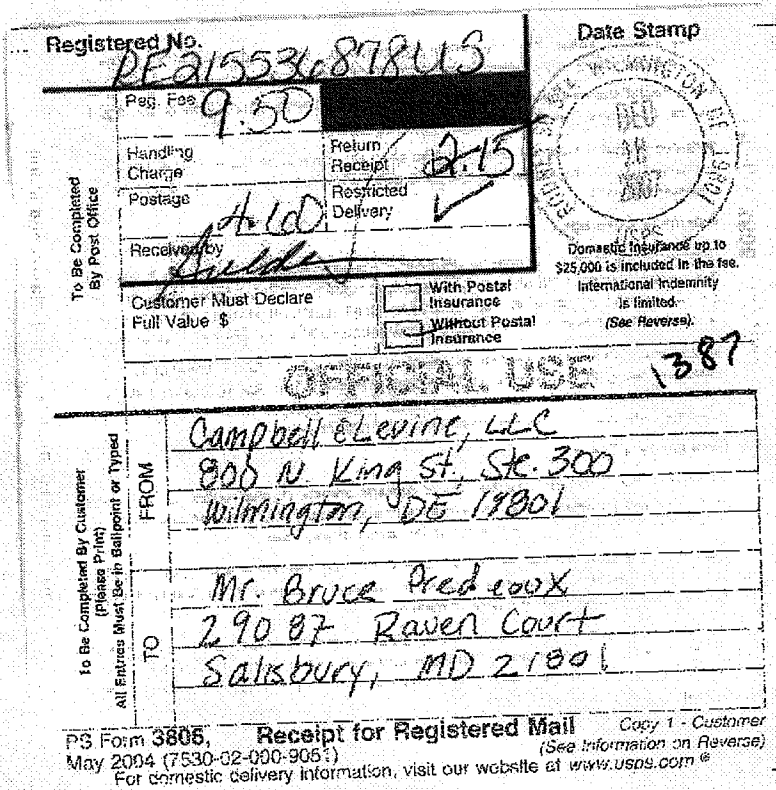 Registered No.
RE215536878US
Date Stamp
To Be Completed
By Post Office
Reg. Fee 9.50
Handling
Charge
Return
Receipt 2.15
Postage 4.60
Restricted
Delivery
Received by
RODNEY SQ STA WILMINGTON DE 19801
DEC
18
2007
USPS
Domestic Insurance up to
$25,000 is included in the fee.
International Indemnity
is limited.
(See Reverse).
Customer Must Declare
Full Value $
With Postal
Insurance
Without Postal
Insurance
OFFICIAL USE
1387
To Be Completed By Customer
(Please Print)
All Entries Must Be in Ballpoint or Typed
FROM
Campbell & Levine, LLC
800 N King St, Ste. 300
Wilmington, DE 19801
TO
Mr. Bruce Predeoux
29087 Raven Court
Salisbury, MD 21801
PS Form 3806, Receipt for Registered Mail Copy 1 - Customer
May 2004 (7530-02-000-9051) (See Information on Reverse)
For domestic delivery information, visit our website at www.usps.com ®